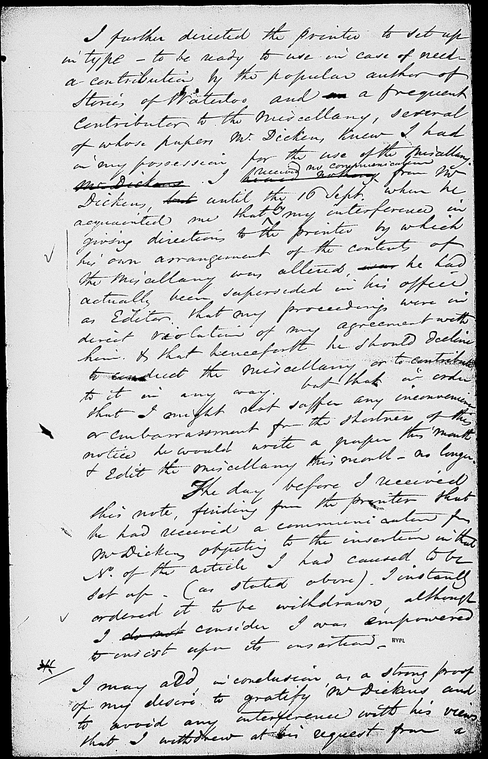 I further directed the printer to set up
in type – to be ready to use in case of need
a contribution by the popular author of
Stories of Waterloo and a frequent
contributor to the Miscellany, several
of whose papers Mr Dickens knew I had
in my possession for the use of the Miscellany.
received no communication
Mr Dickens. I heard nothing from Mr
Dickens, but until the 16 Sept. when he
acquainted me that by my interference in
giving directions to the printer by which
his own arrangement of the contents of
the Miscellany was altered, he had
actually been superseded in his office
as Editor, that my proceedings were in
direct violation of my agreement with
him. & that henceforth he should decline
to conduct the Miscellany or to contribute
to it in any way but that in order
that I might not suffer any inconvenience
or embarrassment for the shortness of the
notice he would write a paper this month
& Edit the Miscellany this month – no longer
The day before I received
this note, finding from the printer that
he had received a communication from
Mr Dickens objecting to the insertion in that
No. of the article I had caused to be
set up – (as stated above). I instantly
ordered it to be withdrawn, although
I do not consider I was empowered
to insist upon its insertion. –
NYPL
I may add in conclusion, as a strong proof
of my desire to gratify Mr Dickens and
to avoid any interference with his views
that I withdrew at his request from a